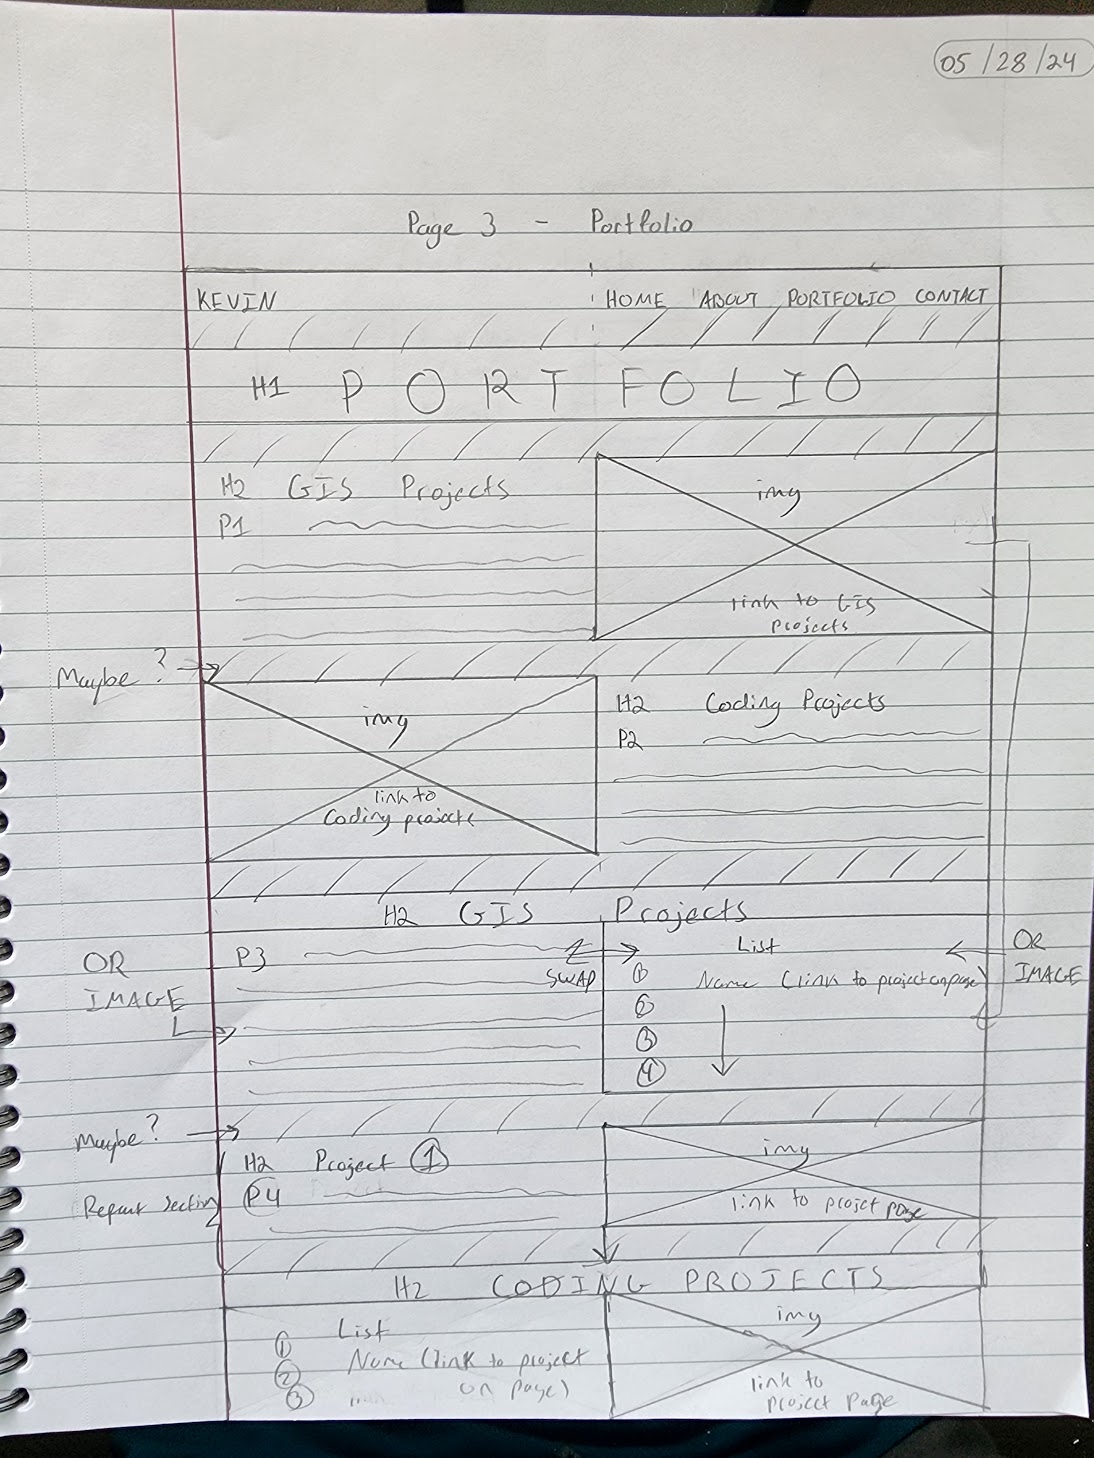 05/28/24
Page 3 - Portfolio
KEVIN HOME ABOUT PORTFOLIO CONTACT
H1 PORTFOLIO
H2 GIS Projects
P1
img
link to GIS
projects
Maybe?
img
link to
Coding projects
H2 Coding Projects
P2
H2 GIS Projects
OR
IMAGE
P3
SWAP
List
① Name (link to project on page)
②
③
④
OR
IMAGE
Maybe?
Repeat section
H2 Project ①
P4
img
link to projct page
H2 CODING PROJECTS
List
① Name (link to project
② on page)
③
img
link to
project page